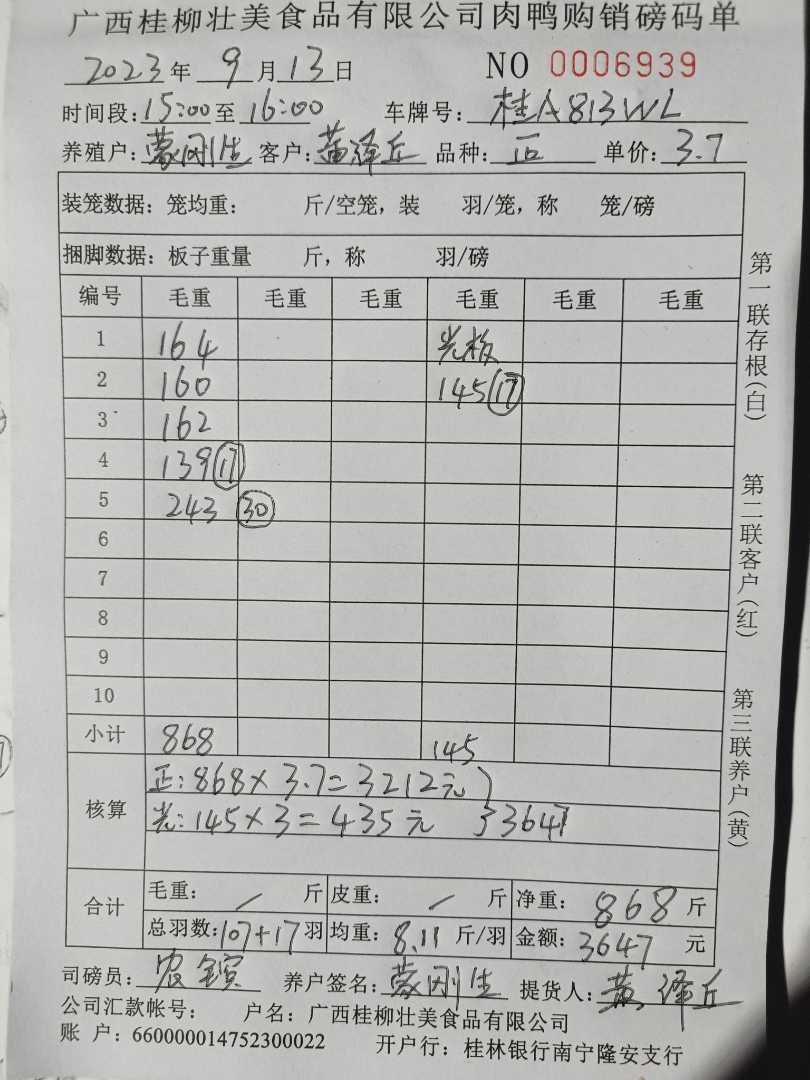 广西桂柳壮美食品有限公司肉鸭购销磅码单
2023年 9月13日 NO 0006939
时间段:15:00至 16:00 车牌号:桂A813WL
养殖户:蒙刚生 客户:黄泽丘 品种:正 单价:3.7
装笼数据:笼均重: 斤/空笼,装 羽/笼,称 笼/磅
捆脚数据:板子重量 斤,称 羽/磅
编号 毛重 毛重 毛重 毛重 毛重 毛重
1 164 光板
2 160 145 (17)
3 162
4 139 (17)
5 243 (30)
6
7
8
9
10
小计 868 145
核算 正:868×3.7=3212元
光:145×3=435元 } 3647
合计 毛重: / 斤 皮重: / 斤 净重: 868 斤
总羽数:107+17羽 均重: 8.11 斤/羽 金额: 3647 元
司磅员: 养户签名:蒙刚生 提货人:黄泽丘
公司汇款帐号: 户名:广西桂柳壮美食品有限公司
账 户:660000014752300022 开户行:桂林银行南宁隆安支行
第一联存根(白)
第二联客户(红)
第三联养户(黄)